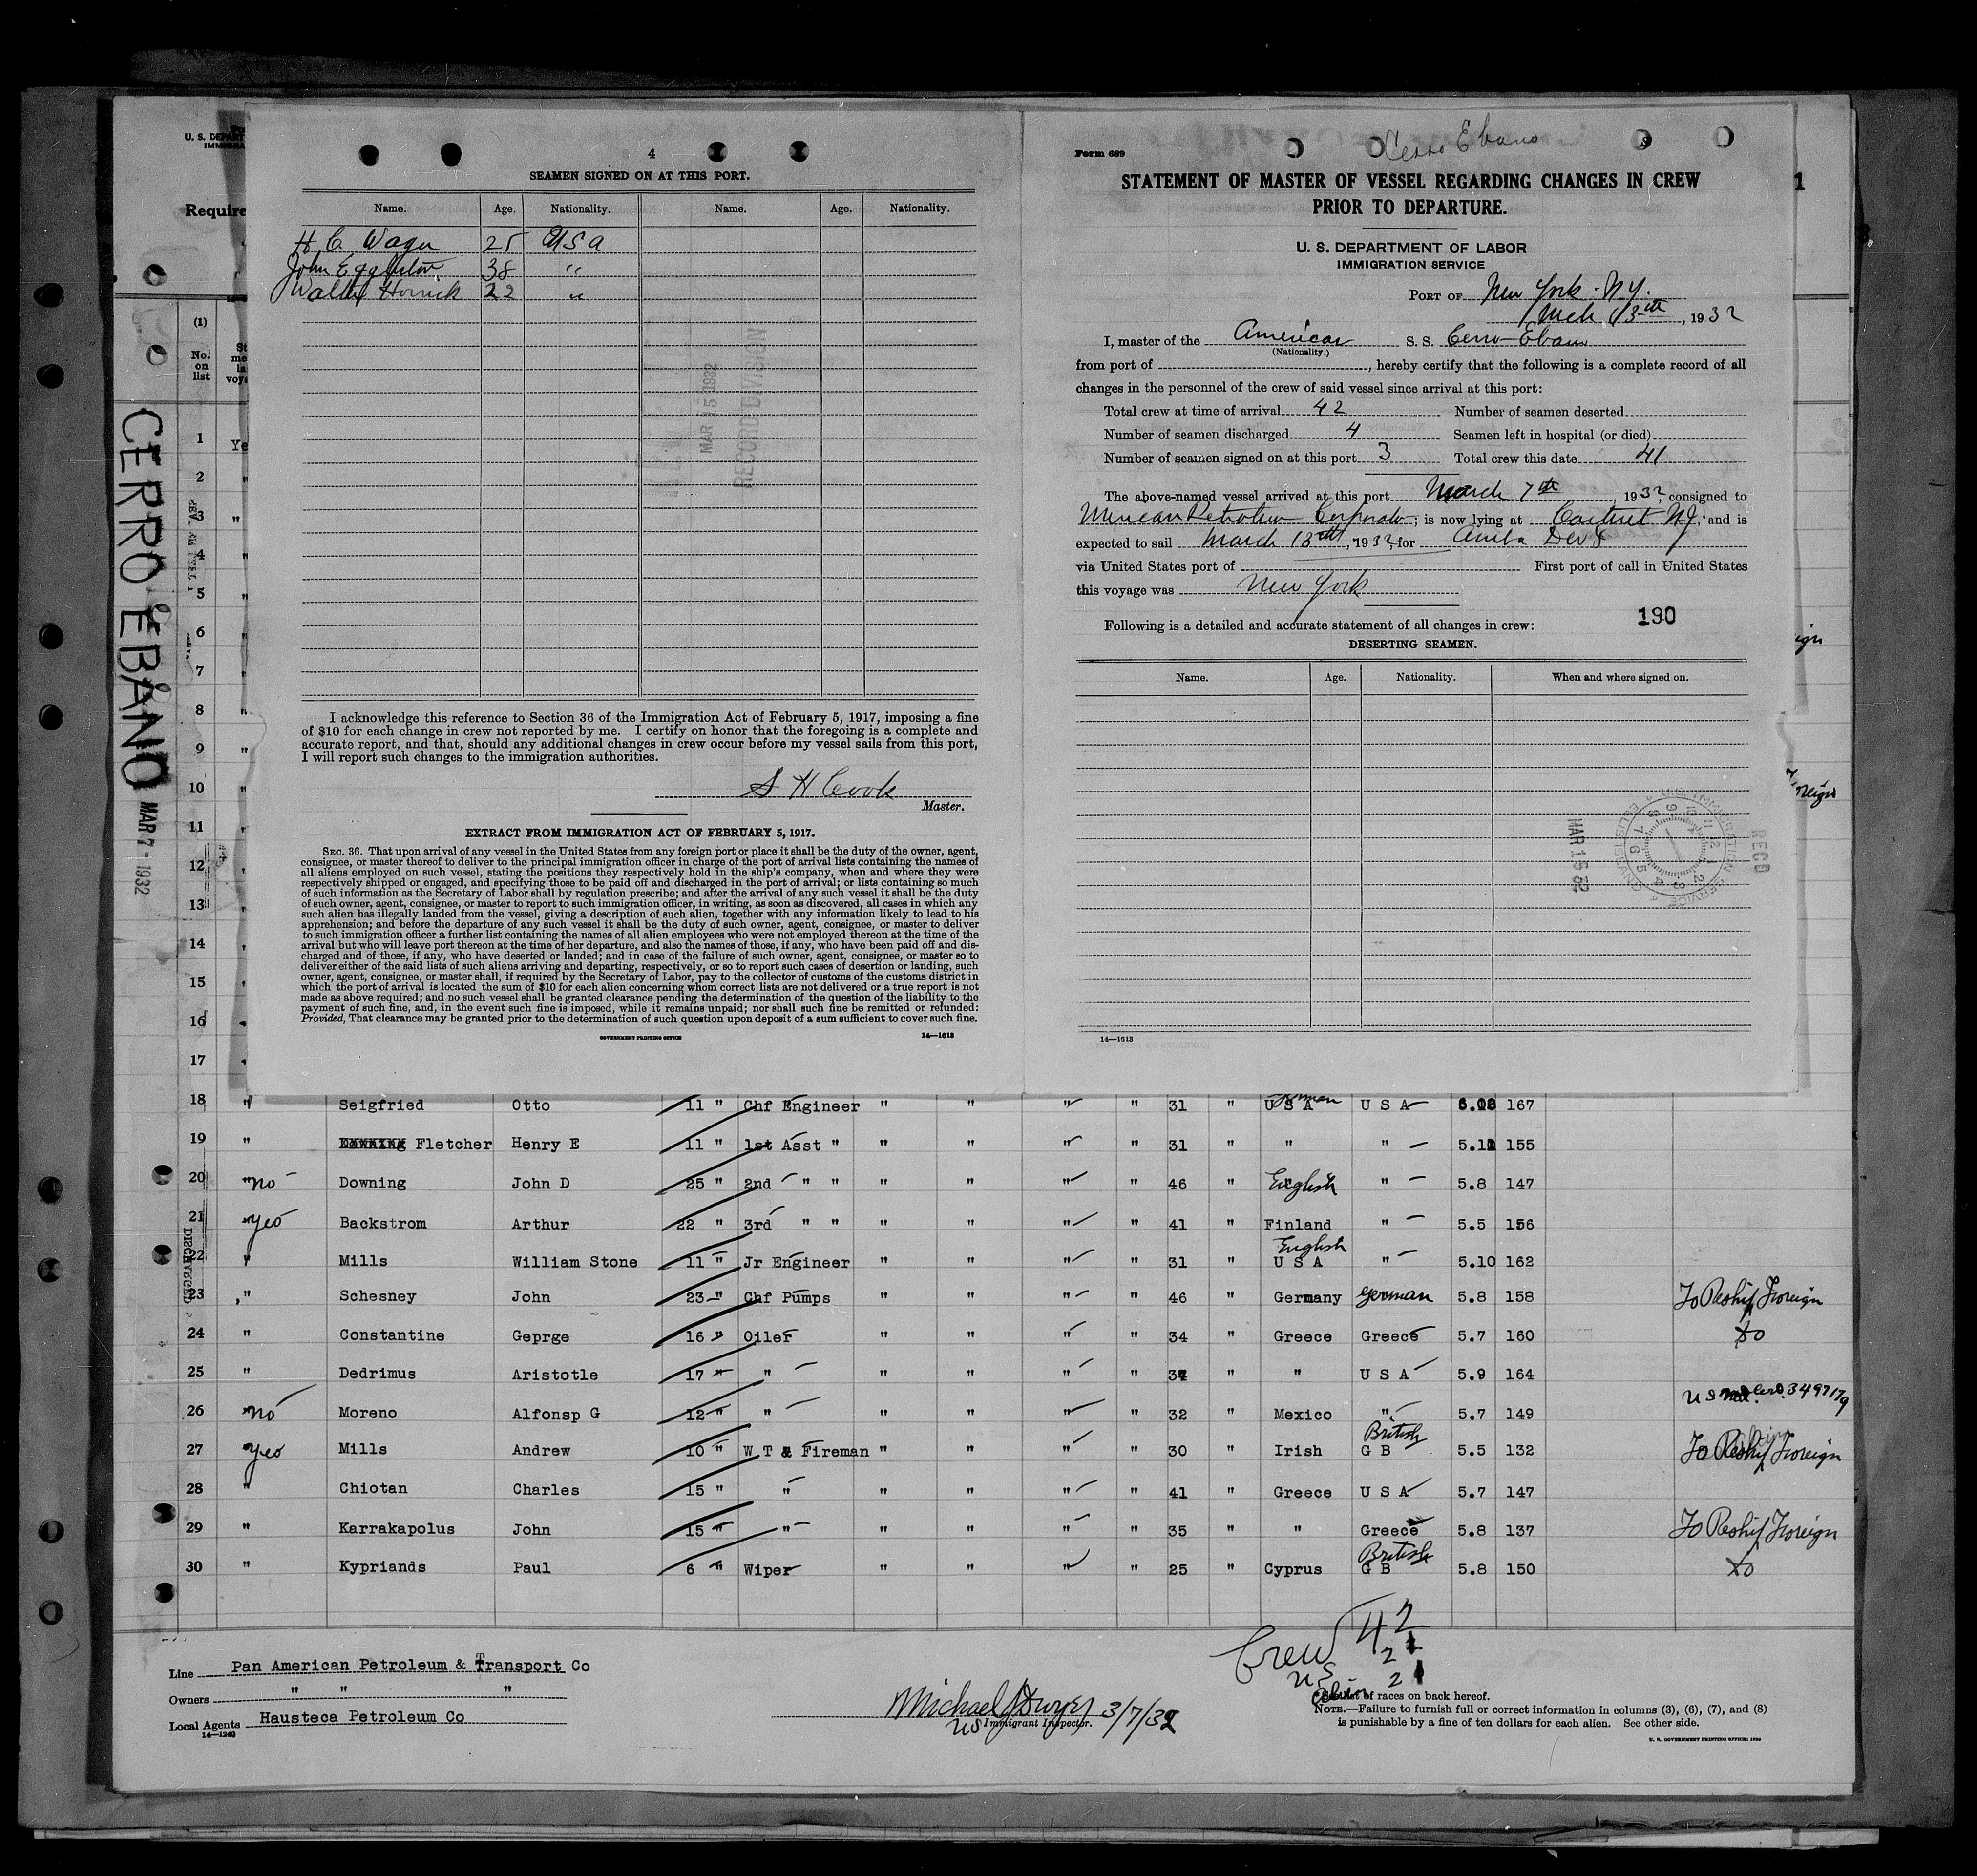 U. S. DEPART
IMMIGRA
Require
(1)
No.
on
list
CERRO EBANO
MAR 7 - 1932
4
SEAMEN SIGNED ON AT THIS PORT.
Name. Age. Nationality. Name. Age. Nationality.
H. C. Wagn 25 USA
John Eggleston 38 "
Walter Horrick 22 "
MAR 15 1932
RECORD DIVISION
I acknowledge this reference to Section 36 of the Immigration Act of February 5, 1917, imposing a fine
of $10 for each change in crew not reported by me. I certify on honor that the foregoing is a complete and
accurate report, and that, should any additional changes in crew occur before my vessel sails from this port,
I will report such changes to the immigration authorities.
S H Cook
Master.
EXTRACT FROM IMMIGRATION ACT OF FEBRUARY 5, 1917.
SEC. 36. That upon arrival of any vessel in the United States from any foreign port or place it shall be the duty of the owner, agent,
consignee, or master thereof to deliver to the principal immigration officer in charge of the port of arrival lists containing the names of
all aliens employed on such vessel, stating the positions they respectively hold in the ship's company, when and where they were
respectively shipped or engaged, and specifying those to be paid off and discharged in the port of arrival; or lists containing so much
of such information as the Secretary of Labor shall by regulation prescribe; and after the arrival of any such vessel it shall be the duty
of such owner, agent, consignee, or master to report to such immigration officer, in writing, as soon as discovered, all cases in which any
such alien has illegally landed from the vessel, giving a description of such alien, together with any information likely to lead to his
apprehension; and before the departure of any such vessel it shall be the duty of such owner, agent, consignee, or master to deliver
to such immigration officer a further list containing the names of all alien employees who were not employed thereon at the time of the
arrival but who will leave port thereon at the time of her departure, and also the names of those, if any, who have been paid off and dis-
charged and of those, if any, who have deserted or landed; and in case of the failure of such owner, agent, consignee, or master so to
deliver either of the said lists of such aliens arriving and departing, respectively, or so to report such cases of desertion or landing, such
owner, agent, consignee, or master shall, if required by the Secretary of Labor, pay to the collector of customs of the customs district in
which the port of arrival is located the sum of $10 for each alien concerning whom correct lists are not delivered or a true report is not
made as above required; and no such vessel shall be granted clearance pending the determination of the question of the liability to the
payment of such fine, and, in the event such fine is imposed, while it remains unpaid; nor shall such fine be remitted or refunded:
Provided, That clearance may be granted prior to the determination of such question upon deposit of a sum sufficient to cover such fine.
GOVERNMENT PRINTING OFFICE 14—1613
Form 689
Cerro Ebano
STATEMENT OF MASTER OF VESSEL REGARDING CHANGES IN CREW
PRIOR TO DEPARTURE.
U. S. DEPARTMENT OF LABOR
IMMIGRATION SERVICE
PORT OF New York. N.Y.
Mch 13th, 1932
I, master of the American S. S. Cerro Ebano
(Nationality.)
from port of , hereby certify that the following is a complete record of all
changes in the personnel of the crew of said vessel since arrival at this port:
Total crew at time of arrival 42 Number of seamen deserted
Number of seamen discharged 4 Seamen left in hospital (or died)
Number of seamen signed on at this port 3 Total crew this date 41
The above-named vessel arrived at this port March 7th, 1932, consigned to
Mexican Petroleum Corporato; is now lying at Carteret N.J., and is
expected to sail March 13th, 1932, for Aruba
via United States port of First port of call in United States
this voyage was New York
Following is a detailed and accurate statement of all changes in crew: 130
DESERTING SEAMEN.
Name. Age. Nationality. When and where signed on.
RECD
IMMIGRATION SERVICE
ELLIS ISLAND
MAR 15 32
14—1613
1
2
3
4
5
6
7
8
9
10
11
12
13
14
15
16
17
18 " Seigfried Otto 11 " Chf Engineer " " " " 31 " German U S A U S A 6.02 167
19 " Fletcher Henry E 11 " 1st Asst " " " " " 31 " " " 5.11 155
20 "no Downing John D 25 " 2nd " " " " " " 46 " English " 5.8 147
21 "yes Backstrom Arthur 22 " 3rd " " " " " " 41 " Finland " 5.5 156
22 " Mills William Stone 11 " Jr Engineer " " " " 31 " English U S A " 5.10 162
23 " Schesney John 23 " Chf Pumps " " " " 46 " Germany German 5.8 158 To Reship Foreign
24 " Constantine Geprge 16 " Oiler " " " " 34 " Greece Greece 5.7 160 do
25 " Dedrimus Aristotle 17 " " " " " " 34 " " U S A 5.9 164
26 "no Moreno Alfonsp G 12 " " " " " " 32 " Mexico " 5.7 149 US Nat. Cert. 3497179
27 yes Mills Andrew 10 " W T & Fireman " " " " 30 " Irish British G B 5.5 132 To Reship Foreign
28 " Chiotan Charles 15 " " " " " " 41 " Greece U S A 5.7 147
29 " Karrakapolus John 15 " " " " " " 35 " " Greece 5.8 137 To Reship Foreign
30 " Kypriands Paul 6 " Wiper " " " " 25 " Cyprus British G B 5.8 150 do
Line Pan American Petroleum & Transport Co
Owners " " "
Local Agents Hausteca Petroleum Co
14—1240
Michael J Dwyer 3/7/32
US Immigrant Inspector.
Crew 42
US 21
Alien 21
*See list of races on back hereof.
NOTE.—Failure to furnish full or correct information in columns (3), (6), (7), and (8)
is punishable by a fine of ten dollars for each alien. See other side.
U. S. GOVERNMENT PRINTING OFFICE: 1930